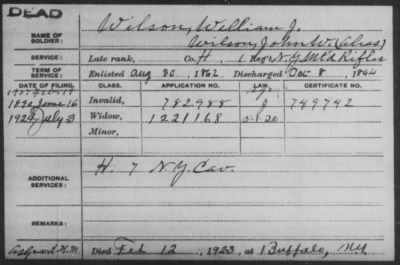 DEAD
NAME OF SOLDIER: Wilson, William J.
Wilson, John W. (Alias)
SERVICE: Late rank, Co. H, 1 Reg't N.Y. Mt'd Rifles
TERM OF SERVICE: Enlisted Aug 30, 1862 Discharged Oct 8, 1864
DATE OF FILING. CLASS. APPLICATION NO. LAW. CERTIFICATE NO.
1890 June 16 Invalid, 782988 749742
1924 July 3 Widow, 1221168 5-1-20
Minor,
ADDITIONAL SERVICES: H. 7 N.Y. Cav.
REMARKS:
Died Feb 12, 1923, at Buffalo, NY